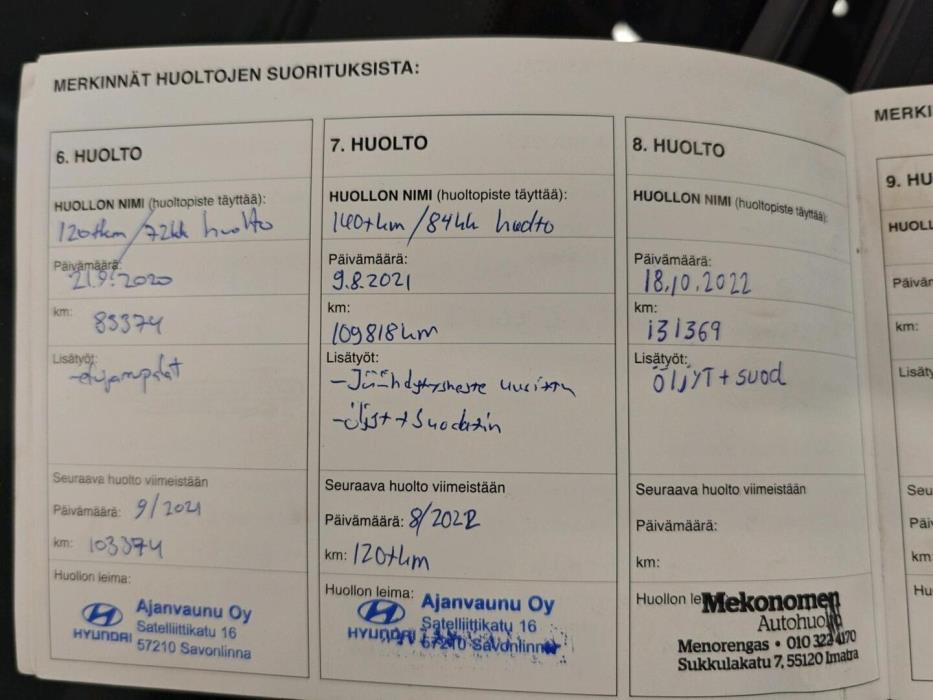 MERKINNÄT HUOLTOJEN SUORITUKSISTA:
6. HUOLTO
HUOLLON NIMI (huoltopiste täyttää):
120tkm/72kk huolto
Päivämäärä:
21.9.2020
km:
83374
Lisätyöt:
-etujarrupalat
Seuraava huolto viimeistään
Päivämäärä: 9/2021
km: 103374
Huollon leima:
HYUNDAI
Ajanvaunu Oy
Satelliittikatu 16
57210 Savonlinna
7. HUOLTO
HUOLLON NIMI (huoltopiste täyttää):
140tkm/84kk huolto
Päivämäärä:
9.8.2021
km:
109818km
Lisätyöt:
-Jäähdytysneste uusittu
-öljyt+Suodatin
Seuraava huolto viimeistään
Päivämäärä: 8/2022
km: 120tkm
Huollon leima:
HYUNDAI
Ajanvaunu Oy
Satelliittikatu 16
57210 Savonlinna
8. HUOLTO
HUOLLON NIMI (huoltopiste täyttää):
Päivämäärä:
18.10.2022
km:
131369
Lisätyöt:
ÖljyT + suod
Seuraava huolto viimeistään
Päivämäärä:
km:
Huollon le
Mekonomen
Autohuolto
Menorengas • 010 323 4170
Sukkulakatu 7, 55120 Imatra
MERKI
9. HU
HUOLL
Päivär
km:
Lisäty
Seu
Päi
km
Hu